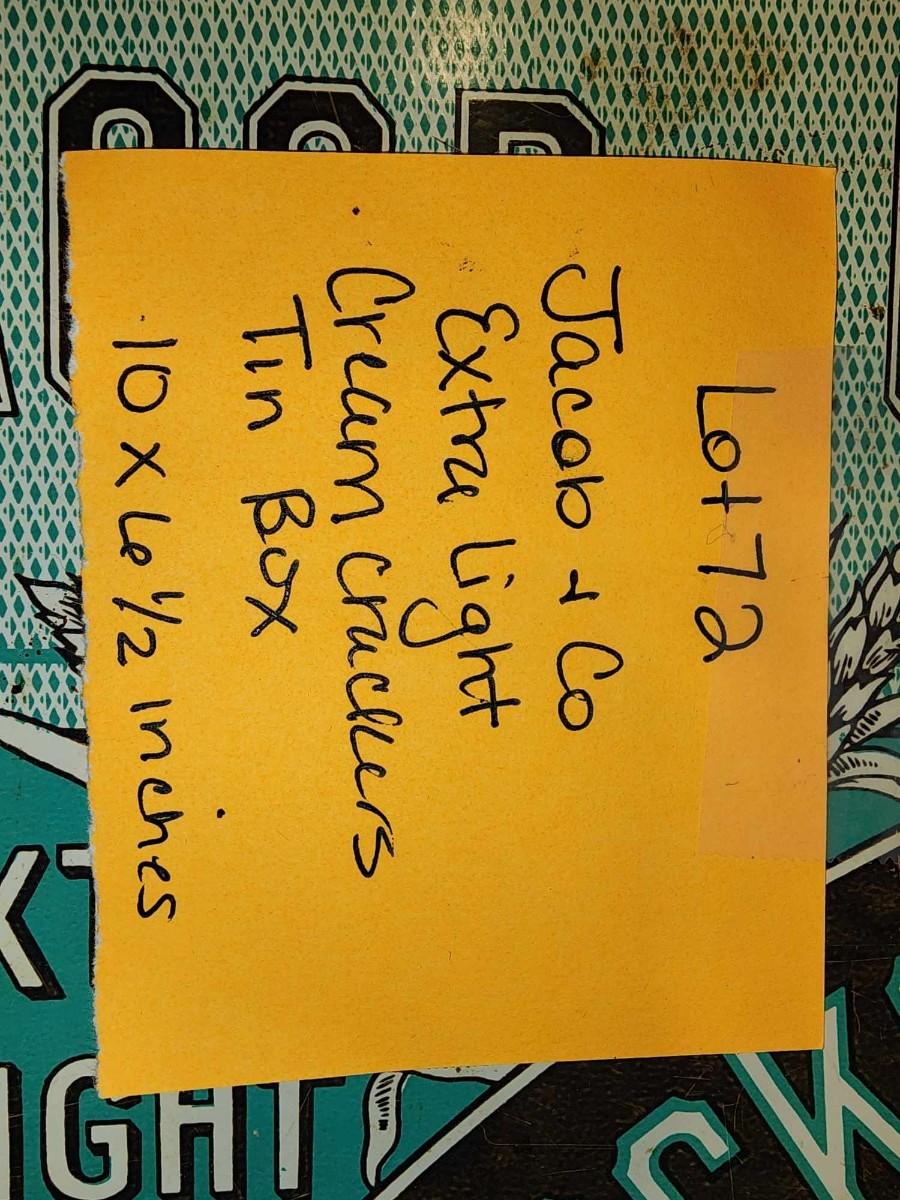 Lot 72
Jacob & Co
Extra Light
Cream Crackers
Tin Box
10 x 6 1/2 inches
XT
IGHT
CK